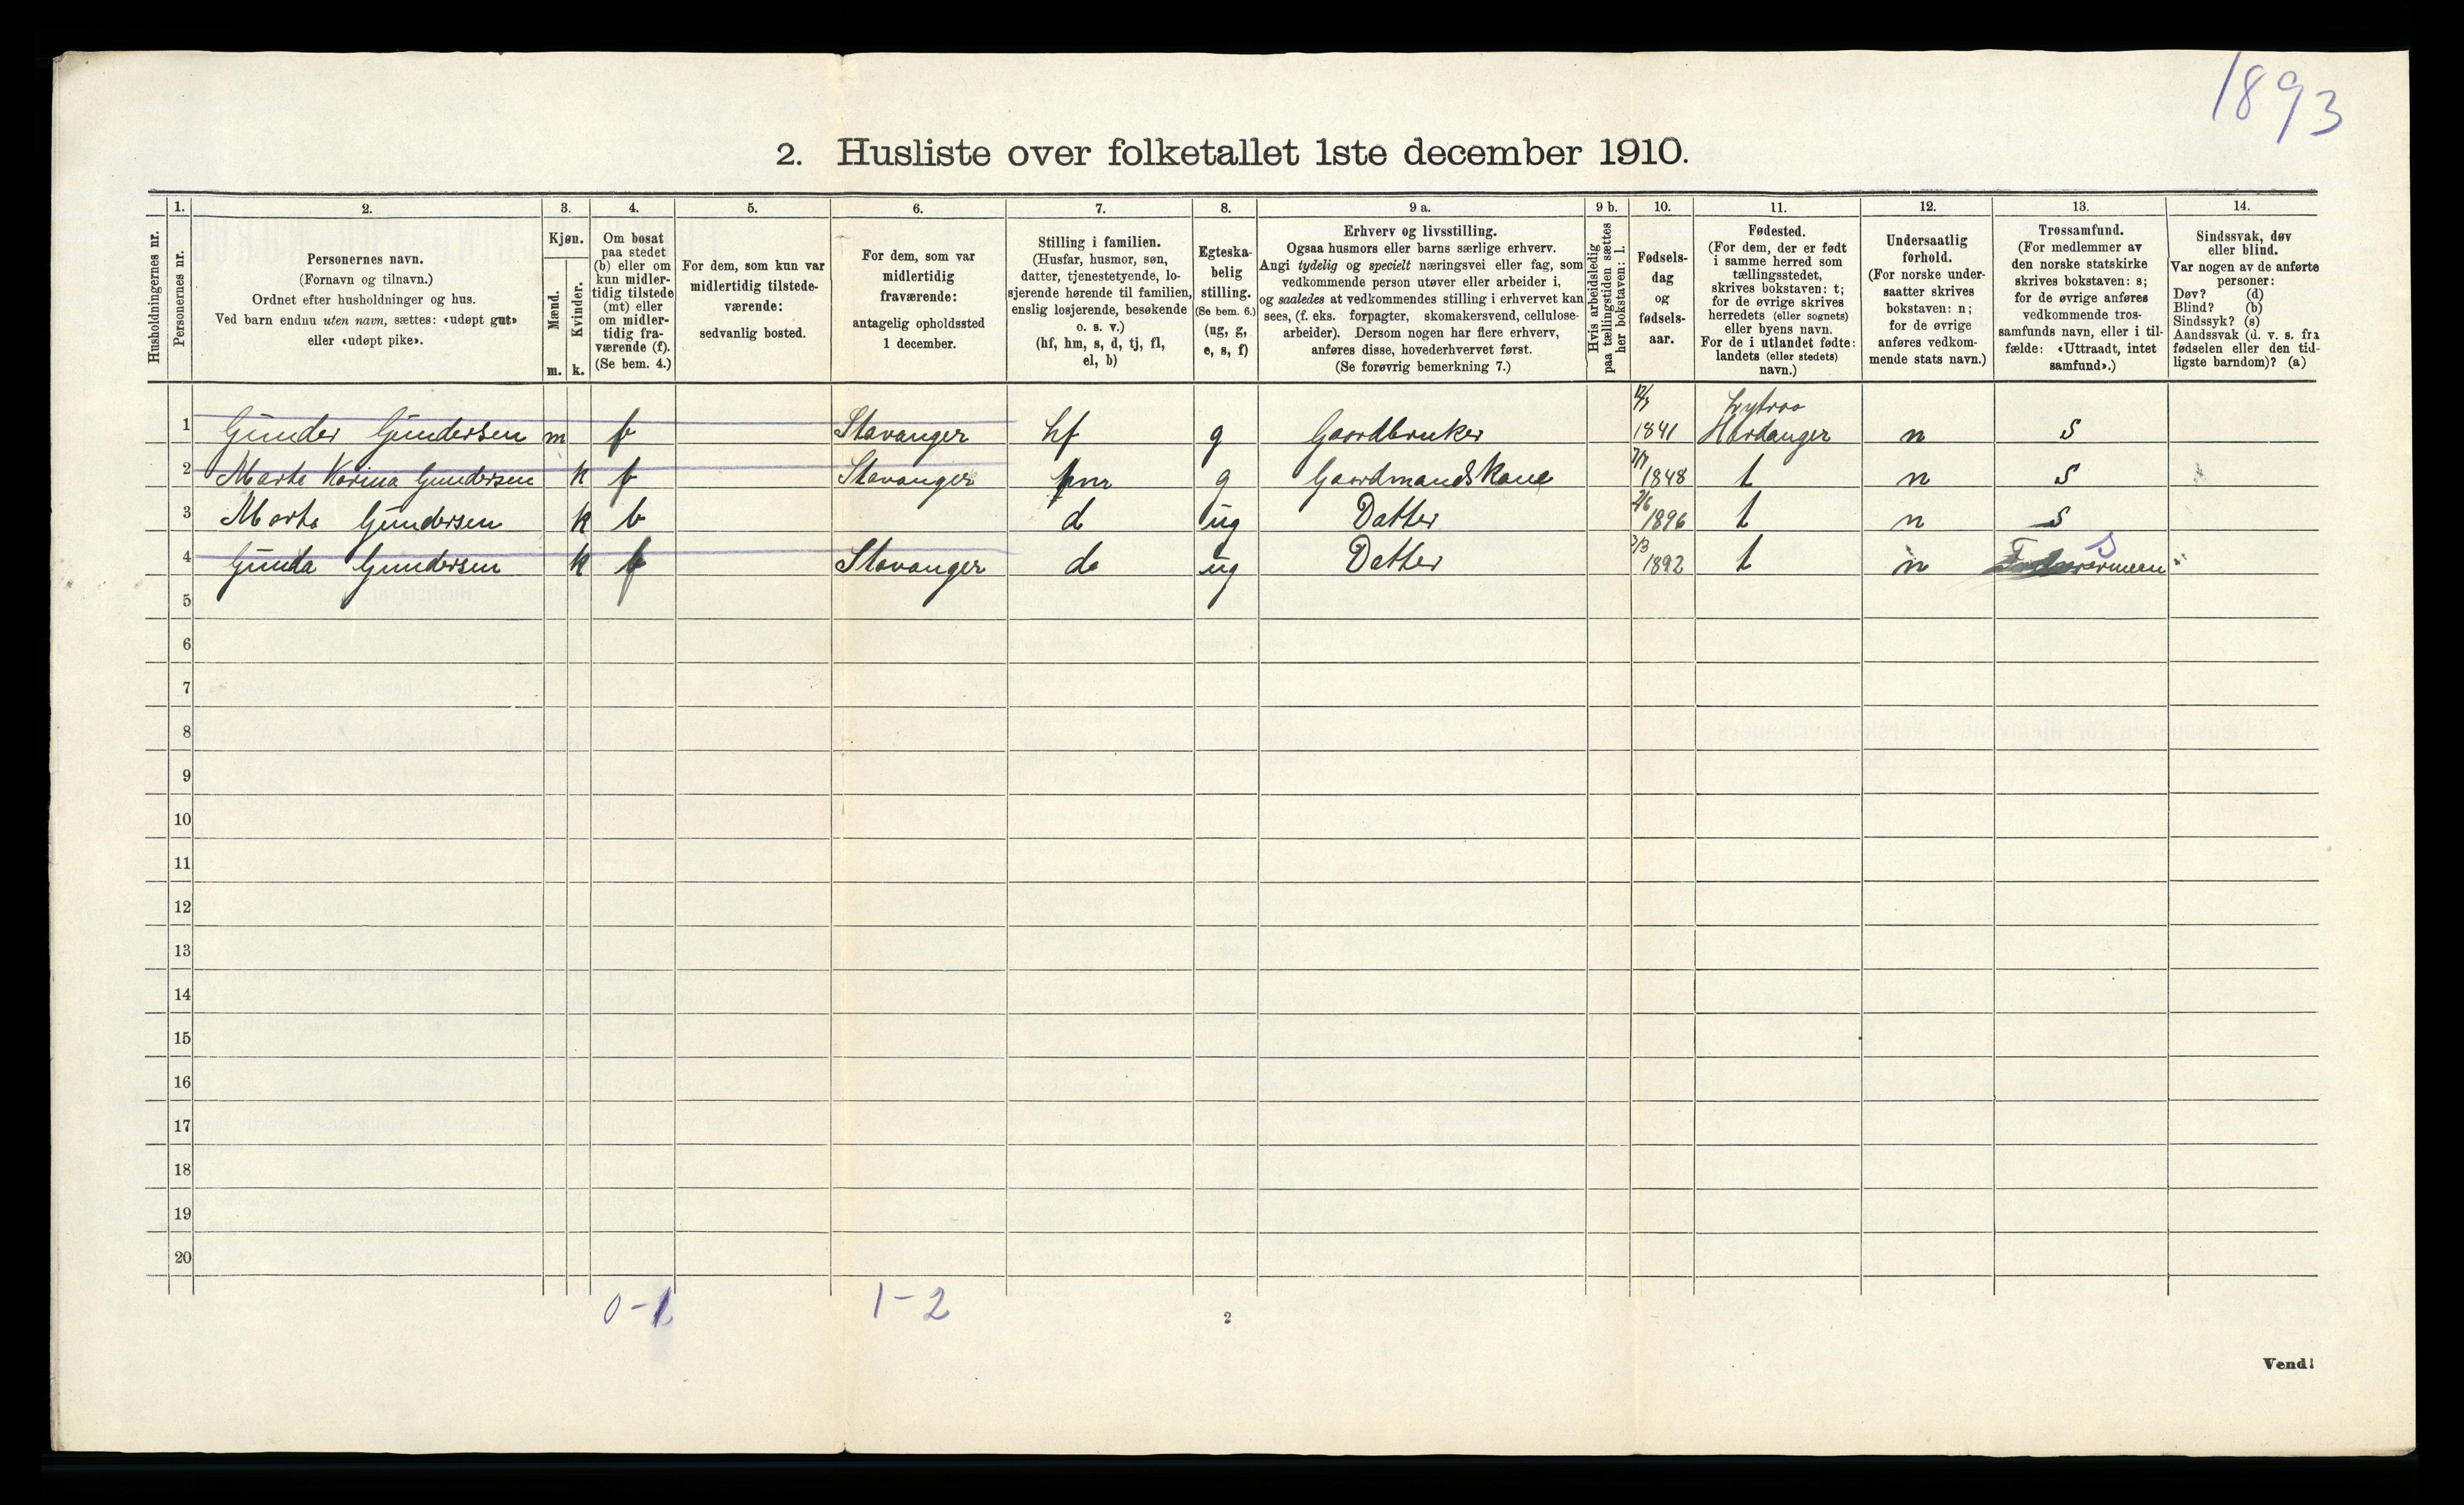 1893
2. Husliste over folketallet 1ste december 1910.
Husholdningernes nr.
1.
Personernes nr.
2.
Personernes navn.
(Fornavn og tilnavn.)
Ordnet efter husholdninger og hus.
Ved barn endnu uten navn, sættes: «udøpt gut»
eller «udøpt pike».
3.
Kjøn.
Mænd.
Kvinder.
m. k.
4.
Om bosat
paa stedet
(b) eller om
kun midler-
tidig tilstede
(mt) eller
om midler-
tidig fra-
værende (f).
(Se bem. 4.)
5.
For dem, som kun var
midlertidig tilstede-
værende:
sedvanlig bosted.
6.
For dem, som var
midlertidig
fraværende:
antagelig opholdssted
1 december.
7.
Stilling i familien.
(Husfar, husmor, søn,
datter, tjenestetyende, lo-
sjerende hørende til familien,
enslig losjerende, besøkende
o. s. v.)
(hf, hm, s, d, tj, fl,
el, b)
8.
Egteska-
belig
stilling.
(Se bem. 6.)
(ug, g,
e, s, f)
9 a.
Erhverv og livsstilling.
Ogsaa husmors eller barns særlige erhverv.
Angi tydelig og specielt næringsvei eller fag, som
vedkommende person utøver eller arbeider i,
og saaledes at vedkommendes stilling i erhvervet kan
sees, (f. eks. forpagter, skomakersvend, cellulose-
arbeider). Dersom nogen har flere erhverv,
anføres disse, hovederhvervet først.
(Se forøvrig bemerkning 7.)
9 b.
Hvis arbeidsledig
paa tællingstiden sættes
her bokstaven: l.
10.
Fødsels-
dag
og
fødsels-
aar.
11.
Fødested.
(For dem, der er født
i samme herred som
tællingsstedet,
skrives bokstaven: t;
for de øvrige skrives
herredets (eller sognets)
eller byens navn.
For de i utlandet fødte:
landets (eller stedets)
navn.)
12.
Undersaatlig
forhold.
(For norske under-
saatter skrives
bokstaven: n;
for de øvrige
anføres vedkom-
mende stats navn.)
13.
Trossamfund.
(For medlemmer av
den norske statskirke
skrives bokstaven: s;
for de øvrige anføres
vedkommende tros-
samfunds navn, eller i til-
fælde: «Uttraadt, intet
samfund».)
14.
Sindssvak, døv
eller blind.
Var nogen av de anførte
personer:
Døv? (d)
Blind? (b)
Sindssyk? (s)
Aandssvak (d. v. s. fra
fødselen eller den tid-
ligste barndom)? (a)
1 Gunder Gundersen m f Stavanger hf g Gaardbruker 1841 Hardanger n s
2 Marta Karina Gundersen k f Stavanger g Gaardmandskone 1848 t n s
3 Marta Gundersen k b d ug Datter 2/6 1896 t n s
4 Gunda Gundersen k f Stavanger d ug Datter 2/3 1892 t n s
5
6
7
8
9
10
11
12
13
14
15
16
17
18
19
20
0-1 1-2
2
Vend!